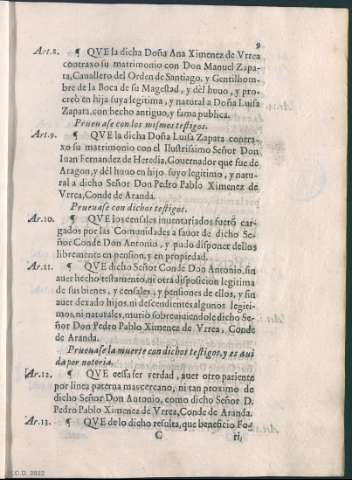 9
Art.8. ¶ QVE la dicha Doña Ana Ximenez de Vrrea
contraxo su matrimonio con Don Manuel Zapa-
ta, Cauallero del Orden de Santiago, y Gentilhom-
bre de la Boca de su Magestad, y dèl huuo, y pro-
creò en hija suya legitima, y natural a Doña Luisa
Zapata, con hecho antiguo, y fama publica.
Prueuase con los mismos testigos.
Art.9. ¶ QVE la dicha Doña Luisa Zapata contra-
xo su matrimonio con el Ilustrissimo Señor Don
Iuan Fernandez de Heredia, Gouernador que fue de
Aragon, y dèl huuo en hijo suyo legitimo, y natu-
ral a dicho Señor Don Pedro Pablo Ximenez de
Vrrea, Conde de Aranda.
Prueuase con dichos testigos.
Ar.10. ¶ QVE los censales inuentariados fuerõ car-
gados por las Comunidades a fauor de dicho Se-
ñor Conde Don Antonio, y pudo disponer dellos
libremente en pension, y en propiedad.
Ar.11. ¶ QVE dicho Señor Conde Don Antonio, sin
auer hecho testamento, ni otra disposicion legitima
de sus bienes, y censales, y pensiones de ellos, y sin
auer dexado hijos, ni descendientes algunos legiti-
mos, ni natutales, murio sobreuiuiendole dicho Se-
ñor Don Pedro Pablo Ximenez de Vrrea, Conde
de Aranda.
Prueuase la muerte con dichos testigos, y es aui
da por notoria.
Ar.12. ¶ QVE cessa ser verdad, auer otro pariente
por linea paterna mas cercano, ni tan proximo de
dicho Señor Don Antonio, como dicho Señor D.
Pedro Pablo Ximenez de Vrrea, Conde de Aranda.
Ar.13. ¶ QVE de lo dicho resulta, que beneficio Fo-
C ri,
C.C.D. 2022